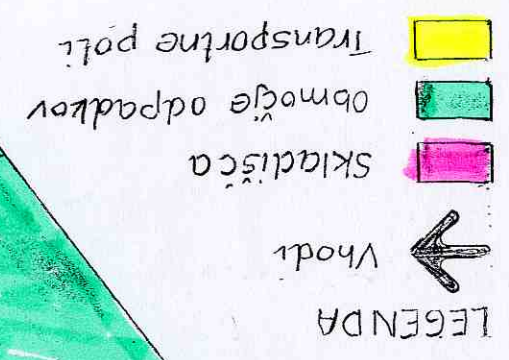 LEGENDA
Vhodi
Skladišča
Območje odpadkov
Transportne poti